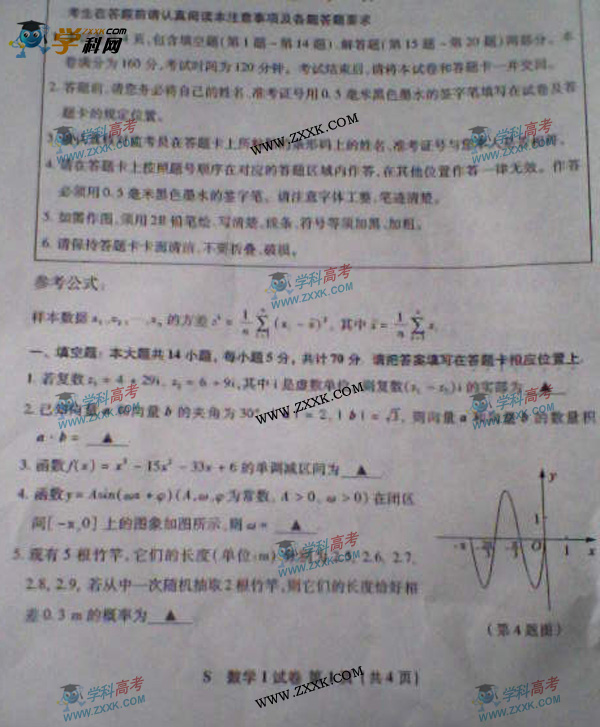 学科网
考生在答题前请认真阅读本注意事项及各题答题要求
页,包含填空题(第1题~第14题)、解答题(第15题~第20题)两部分。本
卷满分为160分,考试时间为120分钟。考试结束后,请将本试卷和答题卡一并交回。
2. 答题前,请您务必将自己的姓名、准考证号用0.5毫米黑色墨水的签字笔填写在试卷及答
题卡的规定位置。
3. 监考员在答题卡上所 条形码上的姓名、准考证号与您本人是否相符。
4. 请在答题卡上按照题号顺序在对应的答题区域内作答,在其他位置作答一律无效。作答
必须用0.5毫米黑色墨水的签字笔。请注意字体工整,笔迹清楚。
5. 如需作图,须用2B铅笔绘、写清楚,线条、符号等须加黑、加粗。
6. 请保持答题卡卡面清洁,不要折叠、破损。
参考公式:
样本数据x₁,x₂,…,xₙ的方差s² = 1/n ∑(xᵢ - x̄)², 其中x̄ = 1/n ∑xᵢ
一、填空题:本大题共14小题,每小题5分,共计70分。请把答案填写在答题卡相应位置上.
1. 若复数z₁ = 4 + 29i, z₂ = 6 + 9i,其中i是虚数单位,则复数(z₁ - z₂)i的实部为 ▲
2. 已知向量a和向量b的夹角为30°, |a| = 2, |b| = √3, 则向量a和向量b的数量积
a · b = ▲
3. 函数f(x) = x³ - 15x² - 33x + 6的单调减区间为 ▲
4. 函数y = Asin(ωx + φ)(A,ω,φ为常数, A > 0, ω > 0)在闭区
间[-π,0]上的图象如图所示,则ω = ▲
y
1
-π
O
1
x
(第4题图)
5. 现有5根竹竿,它们的长度(单位:m)分别为2.5, 2.6, 2.7,
2.8, 2.9, 若从中一次随机抽取2根竹竿,则它们的长度恰好相
差0.3 m的概率为 ▲
S 数学Ⅰ试卷 第1页(共4页)
学科高考
WWW.ZXXK.COM